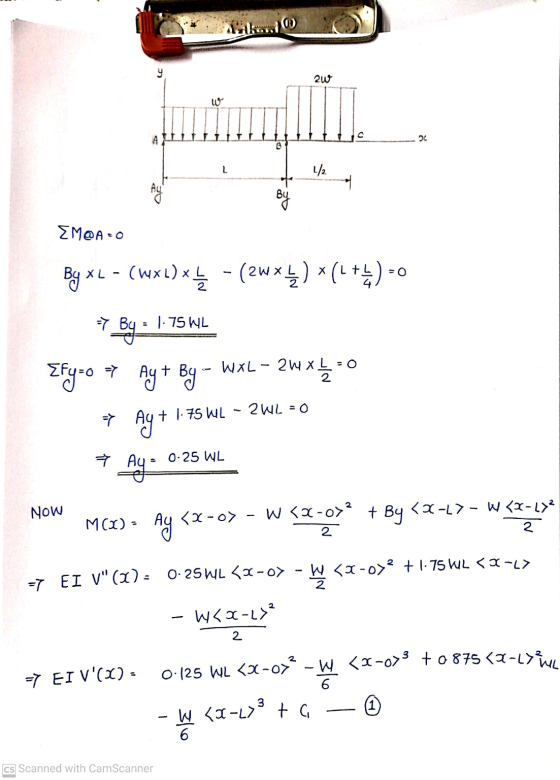 y
2w
w
A
B
C
x
L
L/2
Ay
By
ΣM@A=0
By × L - (W×L) × L/2 - (2W × L/2) × (L + L/4) = 0
⇒ By = 1.75 WL
ΣFy=0 ⇒ Ay + By - W×L - 2W × L/2 = 0
⇒ Ay + 1.75 WL - 2WL = 0
⇒ Ay = 0.25 WL
NOW M(x) = Ay <x-0> - W <x-0>²/2 + By <x-L> - W <x-L>²/2
⇒ EI V"(x) = 0.25WL <x-0> - W/2 <x-0>² + 1.75 WL <x-L>
- W<x-L>²/2
⇒ EI V'(x) = 0.125 WL <x-0>² - W/6 <x-0>³ + 0.875 <x-L>² WL
- W/6 <x-L>³ + C₁ — ①
CS Scanned with CamScanner